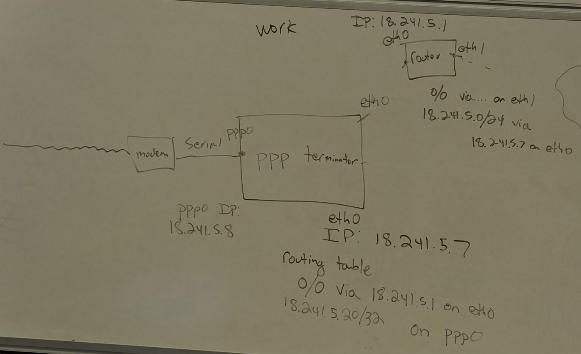 work
IP: 18.241.5.1
eth0
router
eth1
0/0 via.... on eth1
18.241.5.0/24 via
18.241.5.7 on eth0
eth0
modem
Serial
ppp0
PPP terminator
ppp0 IP:
18.241.5.8
eth0
IP: 18.241.5.7
routing table
0/0 via 18.241.5.1 on eth0
18.241.5.20/32 on ppp0